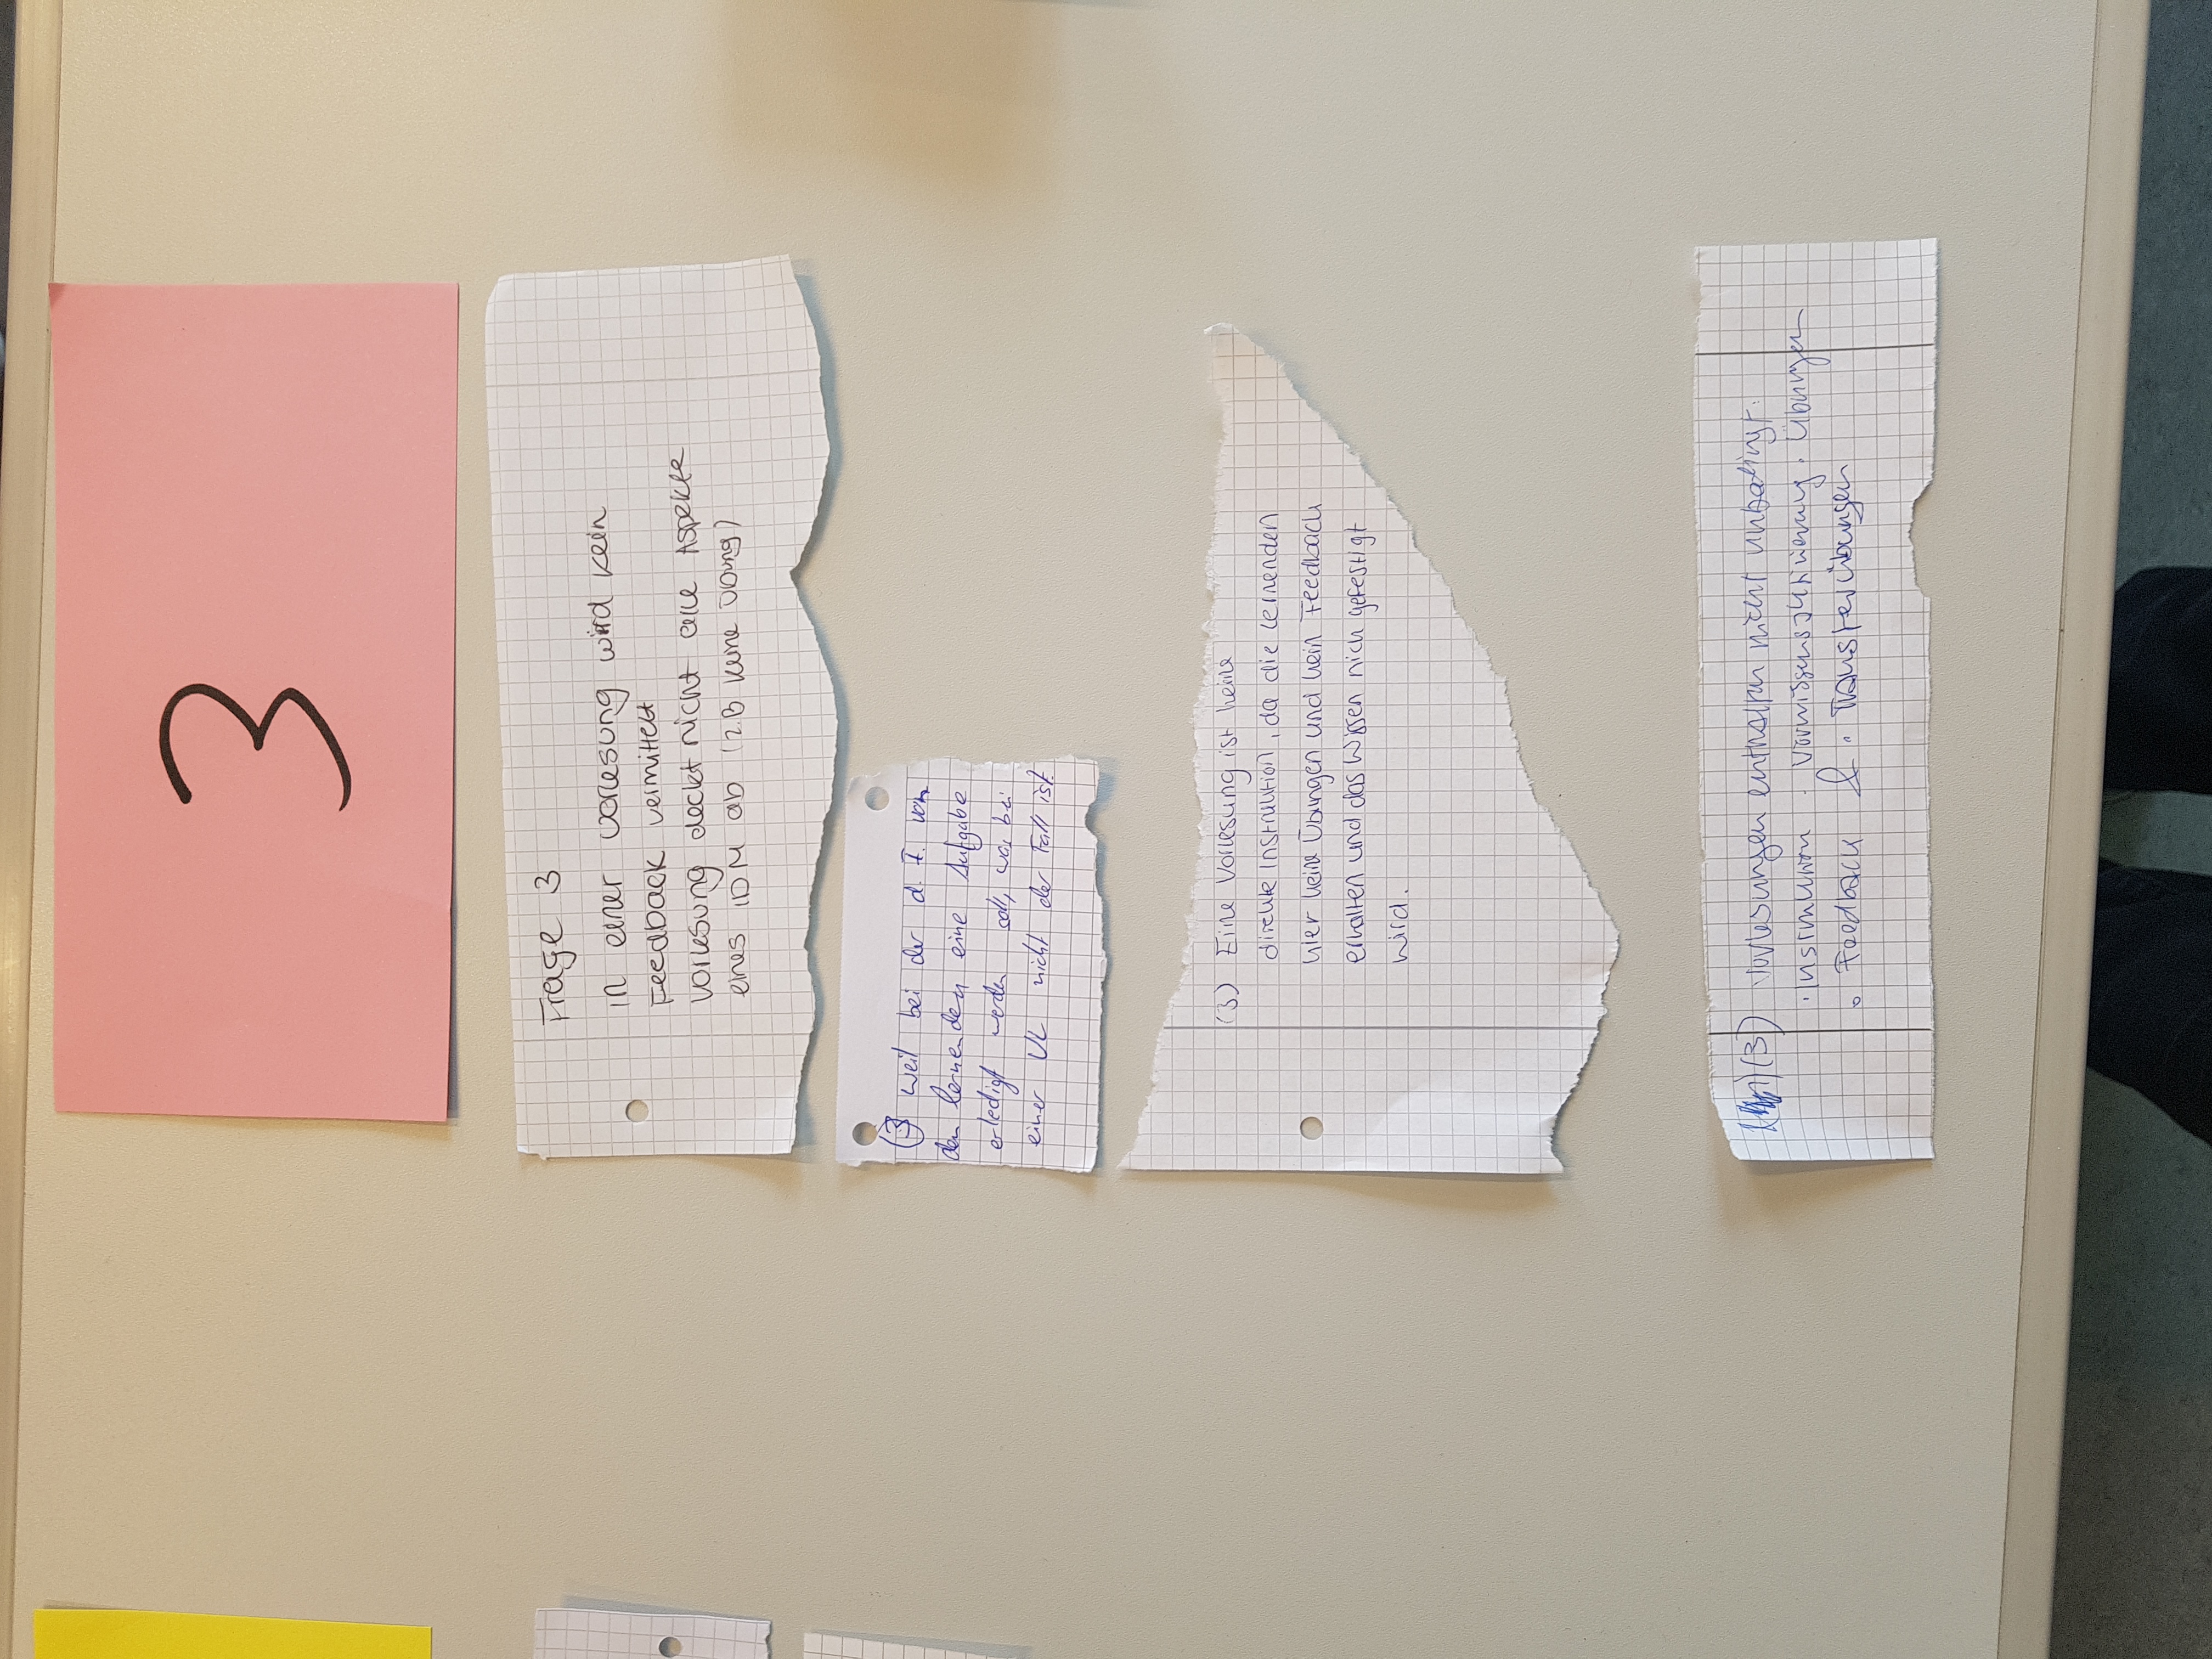 3
Frage 3
in einer Vorlesung wird kein
Feedback vermittelt
Vorlesung deckt nicht alle Aspekte
eines IDM ab (z.B keine Übung)
(3) weil bei der d. I. von
den lernenden eine Aufgabe
erledigt werden soll, was bei
einer VL nicht der Fall ist.
(3) Eine Vorlesung ist keine
direkte Instruktion, da die Lernenden
hier keine Übungen und kein Feedback
erhalten und das Wissen nich gefestigt
wird.
(3) Vorlesungen enthalten nicht unbedingt:
· Instruktion · Vorwissensaktivierung · Übungen
∘ Feedback & · Transferübungen